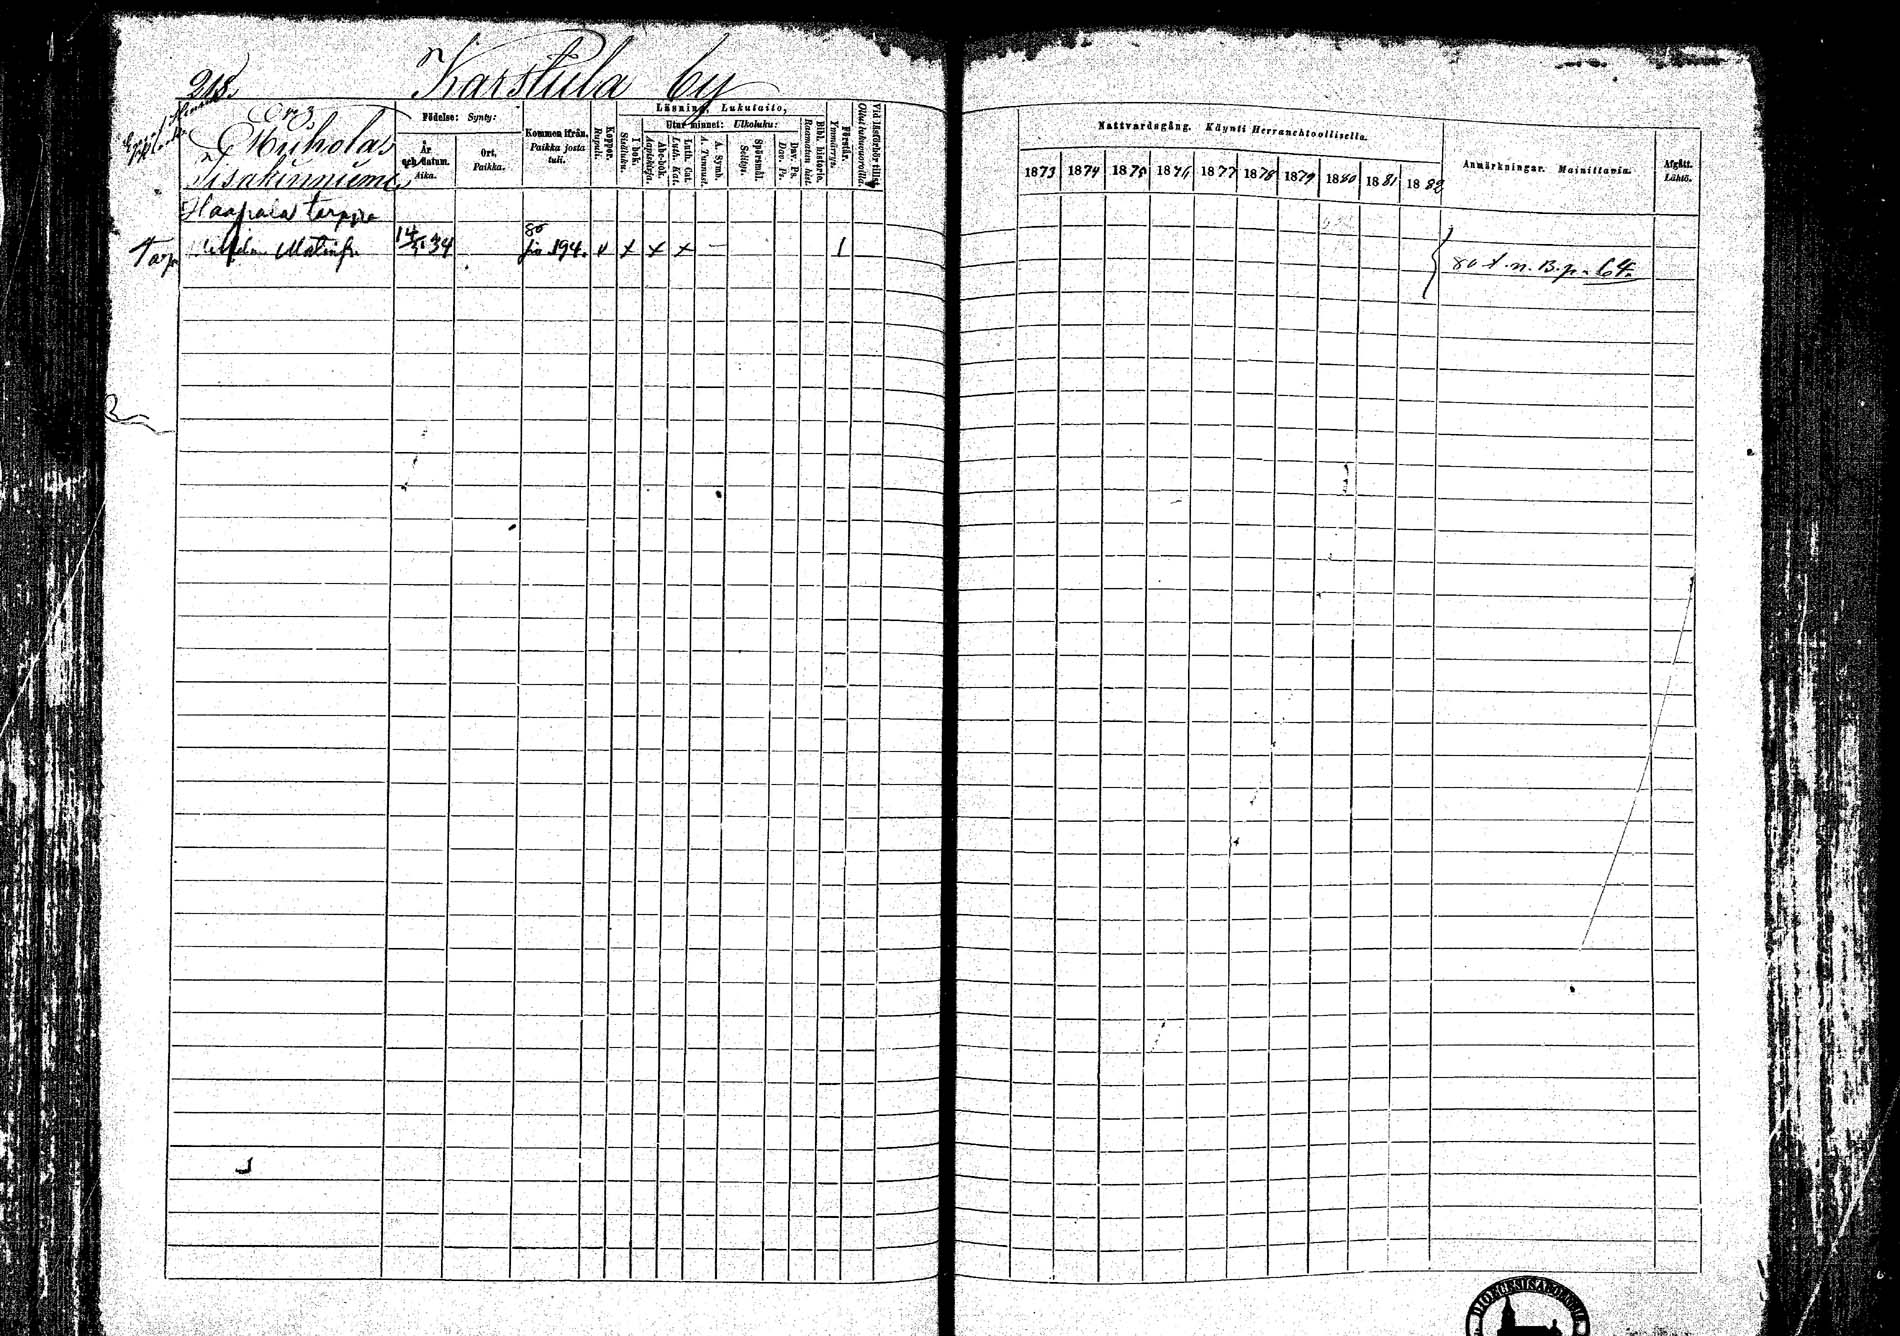 218.
Karstula by
N:o 3.
Muhola
Haapala torppa
Torp.
14/11 34
80
pa. 194.
v x x x – 1
Födelse: Synty:
År och datum. Aika.
Ort. Paikka.
Kommen ifrån. Paikka josta tuli.
Koppor. Rupuli.
Läsning. Lukutaito,
I bok. Sisäluku.
Utur minnet: Ulkoluku:
Abc-bok. Aapiskirja.
Luth. Cat. Luth. Kat.
A. Symb. A. Tunnust.
Spörsmål. Selitys.
Dav. Ps. Dav. Ps.
Bibl. historie. Raamatun hist.
Förstår. Ymmärrys.
Vid läsförhör tillst. Ollut lukuvuoroilla.
Nattvardsgång. Käynti Herranehtoollisella.
1873 1874 1875 1876 1877 1878 1879 1880 1881 1882
Anmärkningar. Mainittavia.
Afgått. Lähtö.
80 t. n. B. p. 64.